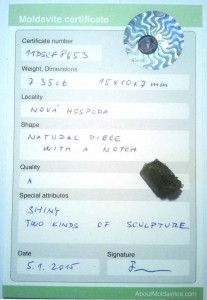 Moldavite certificate
Certificate number
Weight, Dimensions
7.35ct 15x10x7 mm
Locality
NOVÁ HOSPODA
Shape
NATURAL PIECE
WITH A NOTCH
Quality
A
Special attributes
SHINY
TWO KINDS OF SCULPTURE
Date
Signature
5.1.2015
AboutMoldavites.com